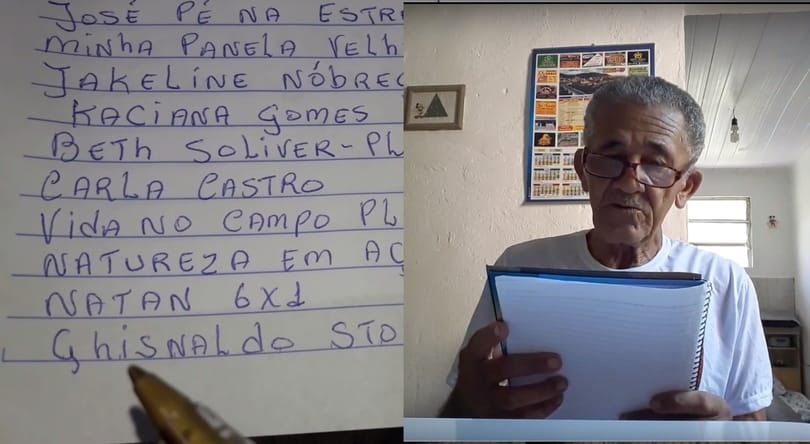 JOSÉ PÉ NA ESTR
MINHA PANELA VELH
JAKELINE NÓBREG
KACIANA GOMES
BETH SOLIVER-PL
CARLA CASTRO
VIDA NO CAMPO PL
NATUREZA EM AÇ
NATAN 6X1
GhISNALdo STO